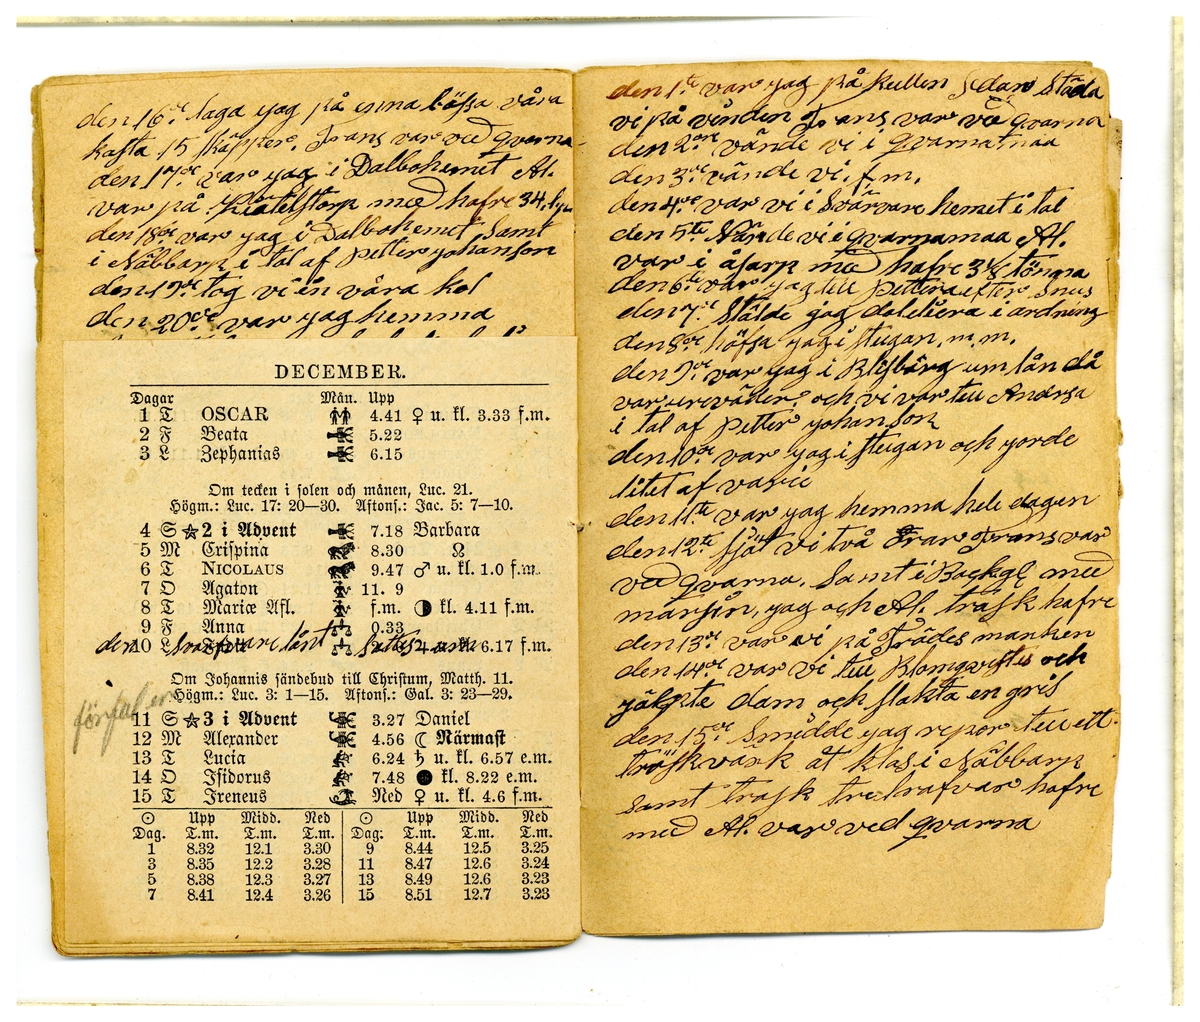 den 16de laga yag på inna bössa våra
kasta 15 skäpper. Frans var ved qvarna
den 17de var yag i Dalbohemet Al.
var på Kiätelstorp med hafre 34.
den 18de var yag i Dalbohemet samt
i Näbbarp i tal af petter yohanson
den 19de tog vi in våra kol
den 20de var yag hemma
DECEMBER.
Dagar Mån. Upp
1 T OSCAR 4.41 ♀ u. kl. 3.33 f.m.
2 F Beata 5.22
3 L Zephanias 6.15
Om tecken i solen och månen, Luc. 21.
Högm.: Luc. 17: 20—30. Aftons.: Jac. 5: 7—10.
4 S ★ 2 i Advent 7.18 Barbara
5 M Crispina 8.30 ☊
6 T NICOLAUS 9.47 ♂ u. kl. 1.0 f.m.
7 O Agaton 11. 9
8 T Mariæ Afl. f.m. ◑ kl. 4.11 f.m.
9 F Anna 0.33
10 L kl. 6.17 f.m.
Om Johannis sändebud till Christum, Matth. 11.
Högm.: Luc. 3: 1—15. Aftons.: Gal. 3: 23—29.
11 S ★ 3 i Advent 3.27 Daniel
12 M Alexander 4.56 ☾ Närmast
13 T Lucia 6.24 ♄ u. kl. 6.57 e.m.
14 O Isidorus 7.48 ● kl. 8.22 e.m.
15 T Ireneus Ned ♀ u. kl. 4.6 f.m.
☉ Upp Midd. Ned ☉ Upp Midd. Ned
Dag. T.m. T.m. T.m. Dag. T.m. T.m. T.m.
1 8.32 12.1 3.30 9 8.44 12.5 3.25
3 8.35 12.2 3.28 11 8.47 12.6 3.24
5 8.38 12.3 3.27 13 8.49 12.6 3.23
7 8.41 12.4 3.26 15 8.51 12.7 3.23
den 1te var yag på kullen sedan städa
vi på vinden Frans var ved qvarna
den 2dre vände vi i qvarnamaa
den 3de vände vi f.m.
den 4de var vi i Svärvare hemet i tal
den 5te Vände vi i qvarnamaa Al.
var i åsarp med hafre 3 1/8 tönna
den 6te var yag till pettera efter snus
den 7de stälde jag daleliera i ardning
den 8de höfsa yag i stugan. m.m.
den 9de var yag i Blisbärg um lån då
var urväder. och vi var till Andersa
i tal af petter yohanson
den 10de var yag i stugan och yorde
litet af
den 11te var yag hemma hele dagen
den 12te sjöt vi två Frans var
ved qvarna, samt i Backge med
märsjin, yag och Al. trask hafre
den 13de var vi på Trädes manken
den 14de var vi till Blomqvistis och
yälpte dam och slakta en gris
den 15de smidde yag repor till ett
tröskvärk åt klas i Näbbarp
samt trask tre trafvar hafre
med Al. var ved qvarna